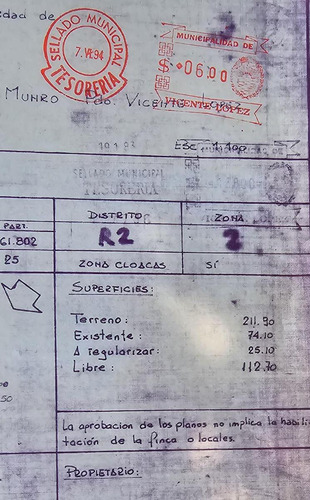 dad de
SELLADO MUNICIPAL
7.VI.94
TESORERIA
MUNICIPALIDAD DE
$ 0600
VICENTE LOPEZ
MUNRO Pdo. VICENTE LOPEZ
ESC 1:100
SELLADO MUNICIPAL
TESORERIA
PART. DISTRITO ZONA
61.802 R2 2
25 ZONA CLOACAS SÍ
SUPERFICIES:
Terreno: 211.90
Existente: 74.10
A regularizar: 25.10
Libre: 112.70
50
La aprobacion de los planos no implica la habili-
tación de la finca o locales.
PROPIETARIO: